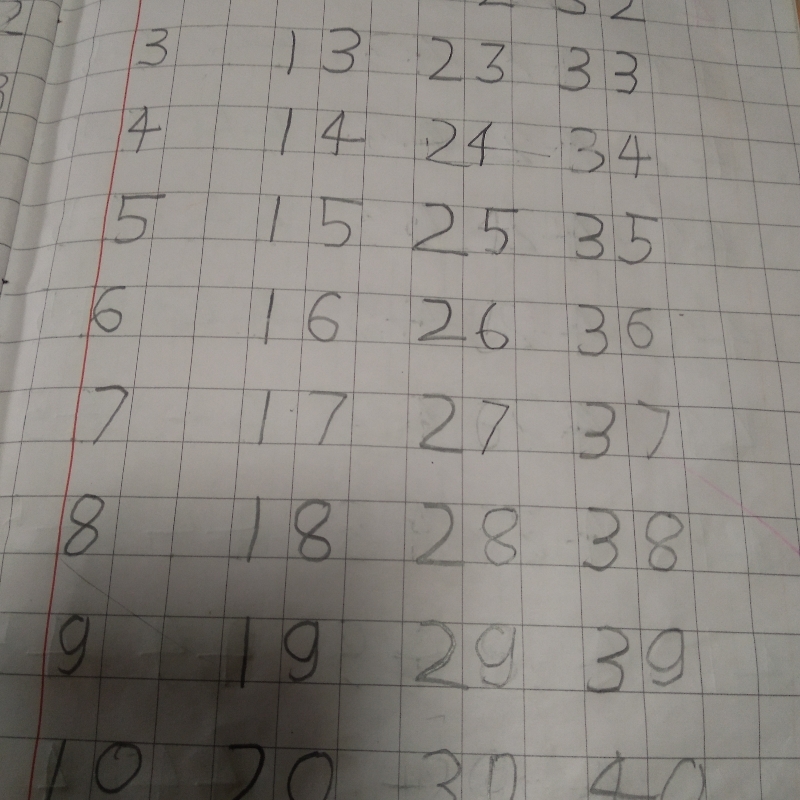 32
3 13 23 33
4 14 24 34
5 15 25 35
6 16 26 36
7 17 27 37
8 18 28 38
9 19 29 39
10 20 30 40